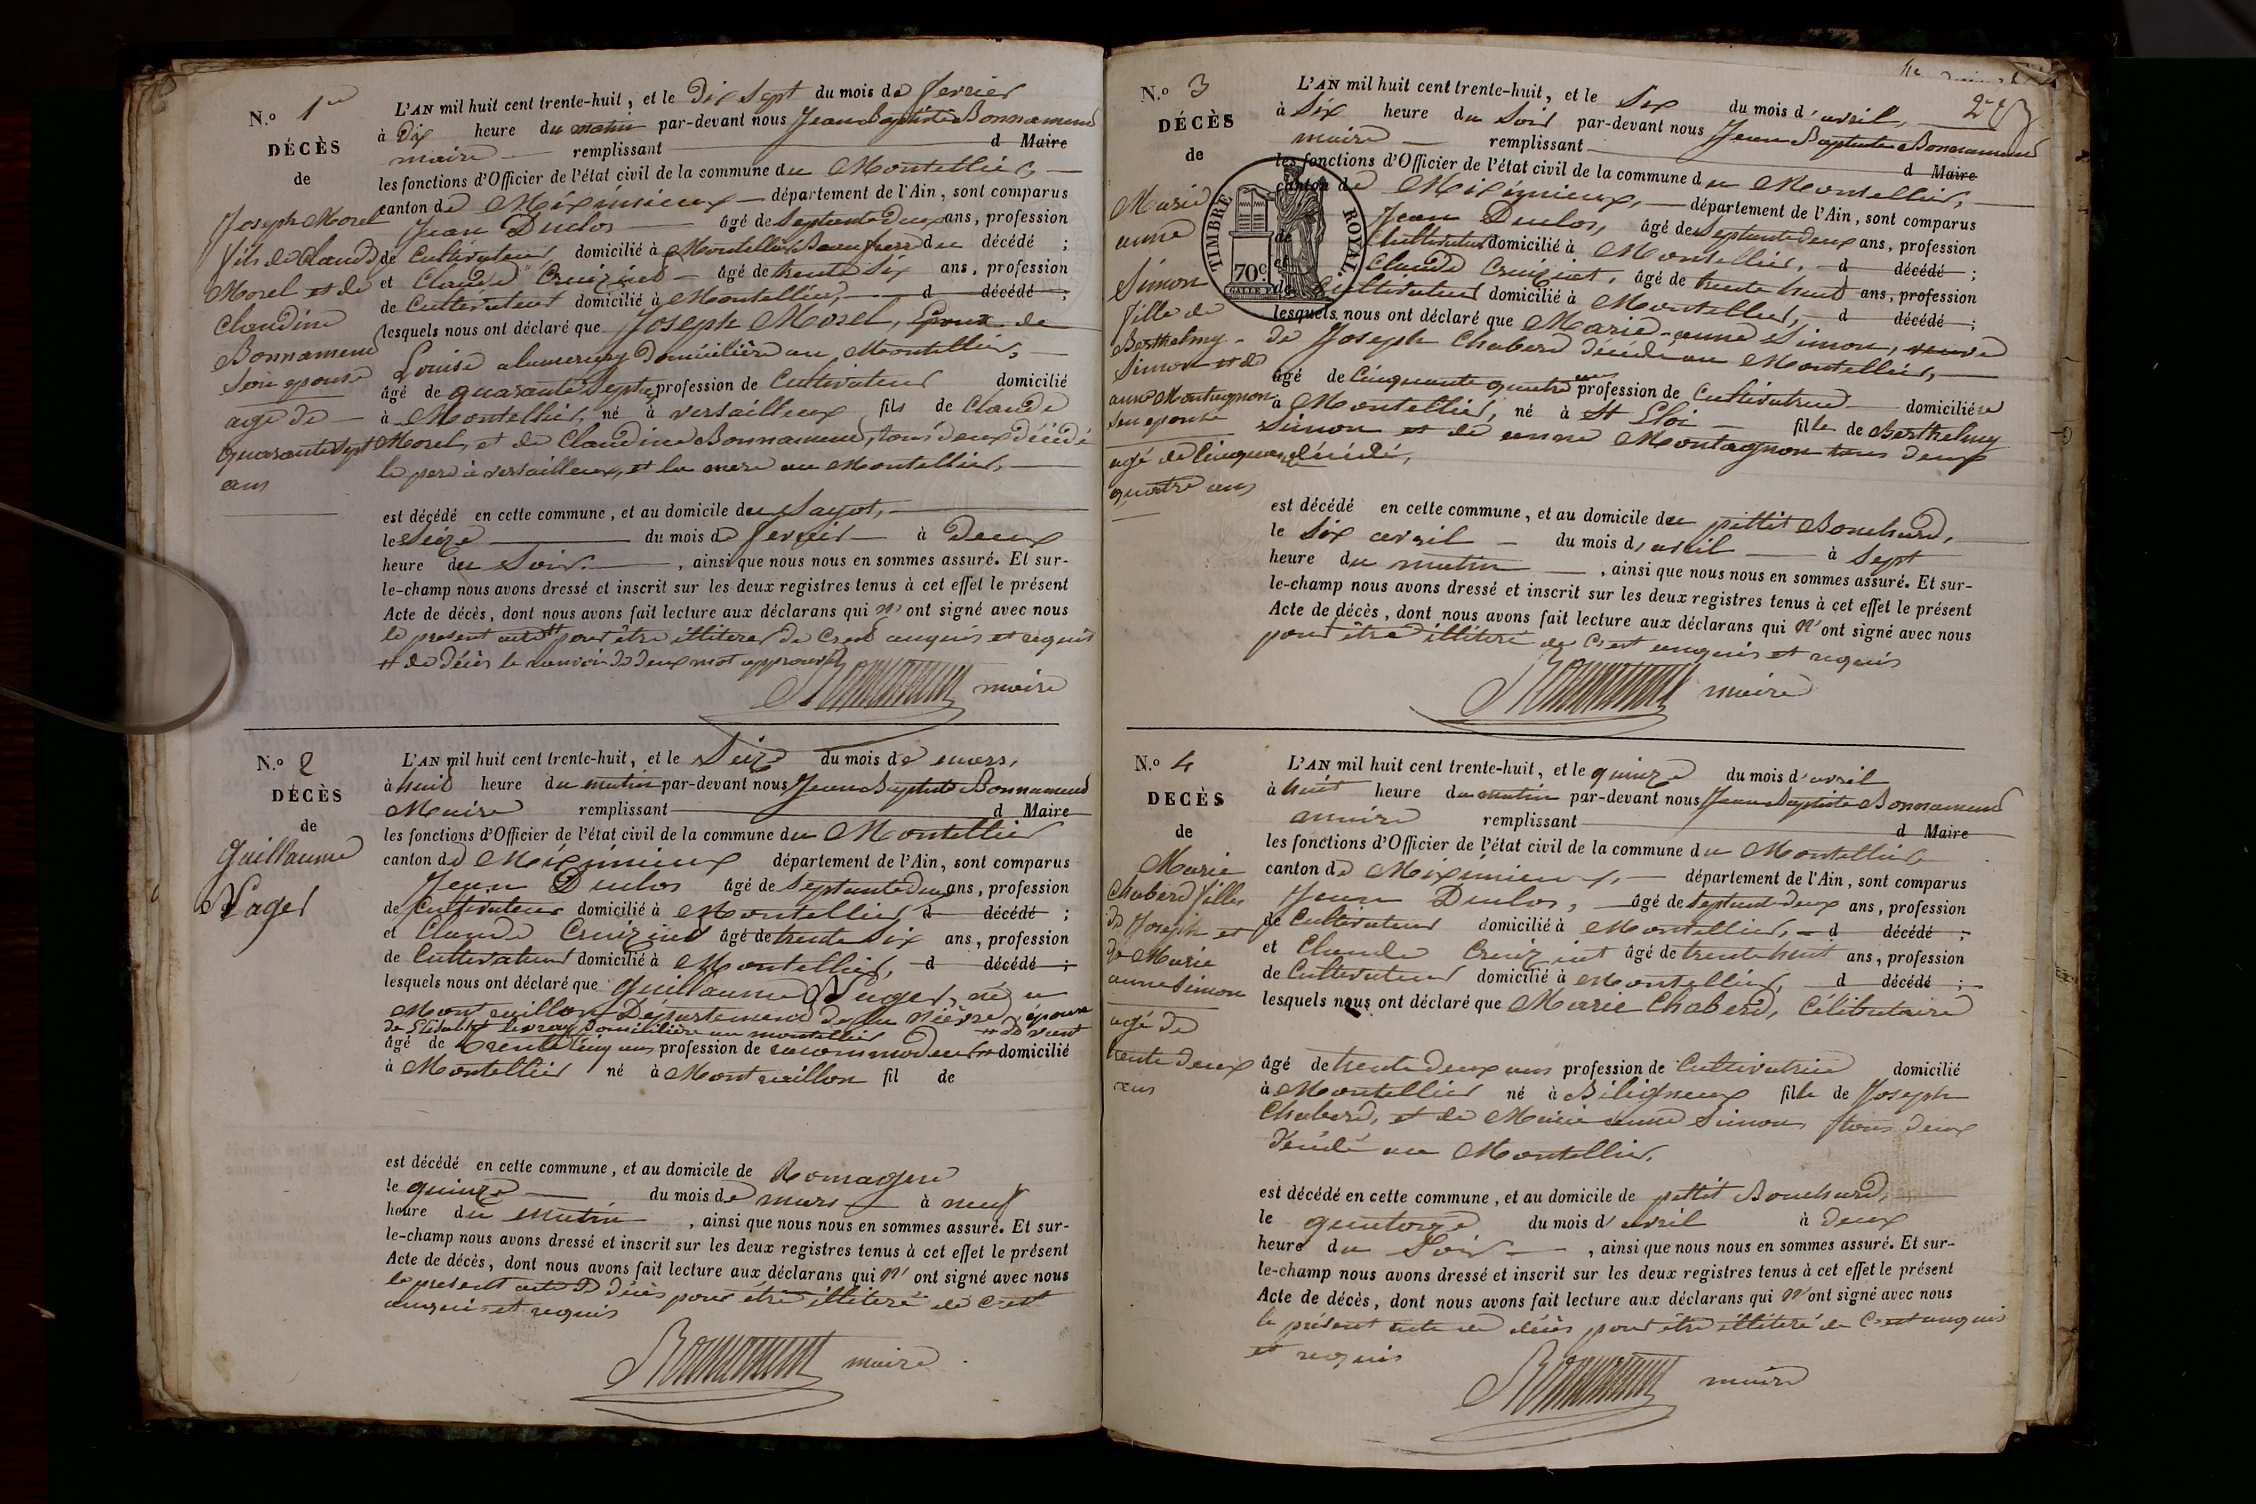 N.o 1er
DÉCÈS
de
Joseph Morel
fils de Claude
Morel et de
Claudine
Bonnamend
son epouse
age de
quarante sept
ans
L'AN mil huit cent trente-huit, et le Dix Sept du mois de fevrier
à Dix heure du matin par-devant nous Jean Baptiste Bonnamend
maire remplissant d Maire
les fonctions d'Officier de l'état civil de la commune du Montellier,
canton de Méximieux département de l'Ain, sont comparus
Jean Duclos âgé de septante deux ans, profession
de Cultivateur domicilié à Montellier Beaufrere du décédé ;
et Claude Cruizint âgé de trente Six ans, profession
de Cultivateur domicilié à Montellier, d décédé ;
lesquels nous ont déclaré que Joseph Morel, Epoux de
Louise domicilière au Montellier,
âgé de quarante Sept ans profession de Cultivateur domicilié
à Montellier, né à versailleux fils de Claude
Morel, et de Claudine Bonnamend, tous deux décédé
le pere à versailleux, et la mere au Montellier,
est décédé en cette commune, et au domicile du Sayot,
le Seize du mois de fevrier à Deux
heure du Soir. , ainsi que nous nous en sommes assuré. Et sur-
le-champ nous avons dressé et inscrit sur les deux registres tenus à cet effet le présent
Acte de décès, dont nous avons fait lecture aux déclarans qui n' ont signé avec nous
le present acte # pour être illiteré de Ce enquis et requis
# de décès le renvoi de deux mot approuvé
Bonnamend maire
N.o 2
DÉCÈS
de
Guillaume
Nager
L'AN mil huit cent trente-huit, et le Seize du mois de mars,
à huit heure du matin par-devant nous Jean Baptiste Bonnamend
Maire remplissant d Maire
les fonctions d'Officier de l'état civil de la commune du Montellier
canton de Méximieux département de l'Ain, sont comparus
Jean Duclos âgé de septante deux ans, profession
de Cultivateur domicilié à Montellier, d décédé ;
et Claude Cruizint âgé de trente Six ans, profession
de Cultivateur domicilié à Montellier, d décédé ;
lesquels nous ont déclaré que Guillaume Nager, né a
Montreuillon Département de la Nièvre, epoux
de Elisabet domicilière au montellier
âgé de trente Cinq ans profession de racommodeur domicilié
à Montellier né à Montreuillon fil de
est décédé en cette commune, et au domicile de Romagne
le quinze du mois de mars à neuf
heure du matin , ainsi que nous nous en sommes assuré. Et sur-
le-champ nous avons dressé et inscrit sur les deux registres tenus à cet effet le présent
Acte de décès, dont nous avons fait lecture aux déclarans qui n' ont signé avec nous
le present acte de décès pour être illiteré de Ce
enquis et requis
Bonnamend maire
2e
N.o 3
DÉCÈS
de
Marie
anne
Simon
fille de
Berthelmy
Simon et de
anne Montagnon
son epouse
agé de Cinquante
quatre ans
L'AN mil huit cent trente-huit, et le Six du mois d'avril,
à Six heure du Soir par-devant nous Jean Baptiste Bonnamend
maire remplissant d Maire
les fonctions d'Officier de l'état civil de la commune du Montellier,
canton de Méximieux, département de l'Ain, sont comparus
Jean Duclos, âgé de septante deux ans, profession
de Cultivateur domicilié à Montellier, d décédé ;
et Claude Cruizint, âgé de trente huit ans, profession
de Cultivateur domicilié à Montellier, d décédé ;
lesquels nous ont déclaré que Marie-anne Simon, veuve
de Joseph Chaberd décédé au Montellier,
âgé de Cinquante quatre ans profession de Cultivatrice domiciliére
à Montellier, né à St Eloi fille de Berthelmy
Simon et de anne Montagnon tous deux
décédé,
TIMBRE ROYAL.
70c
est décédé en cette commune, et au domicile du pettit Bouchard,
le Six avril du mois d'avril à Sept
heure du matin , ainsi que nous nous en sommes assuré. Et sur-
le-champ nous avons dressé et inscrit sur les deux registres tenus à cet effet le présent
Acte de décès, dont nous avons fait lecture aux déclarans qui n' ont signé avec nous
pour être illiteré de Ce enquis et requis
Bonnamend maire
N.o 4
DECÈS
de
Marie
Chaberd fille
de Joseph et
de Marie
anne Simon
agé de
trente deux
ans
L'AN mil huit cent trente-huit, et le quinze du mois d'avril
à huit heure du matin par-devant nous Jean Baptiste Bonnamend
maire remplissant d Maire
les fonctions d'Officier de l'état civil de la commune du Montellier
canton de Méximieux, département de l'Ain, sont comparus
Jean Duclos, âgé de septante deux ans, profession
de Cultivateur domicilié à Montellier, d décédé ;
et Claude Cruizint âgé de trente huit ans, profession
de Cultivateur domicilié à Montellier, d décédé ;
lesquels nous ont déclaré que Marie Chaberd, Célibataire
âgé de trente deux ans profession de Cultivatrice domicilié
à Montellier né à Béligneux fille de Joseph
Chaberd, et de Marie anne Simon tous deux
décédé au Montellier.
est décédé en cette commune, et au domicile de pettit Bouchard,
le quatorze du mois d'avril à deux
heure du Soir , ainsi que nous nous en sommes assuré. Et sur-
le-champ nous avons dressé et inscrit sur les deux registres tenus à cet effet le présent
Acte de décès, dont nous avons fait lecture aux déclarans qui n' ont signé avec nous
le présent acte de décès pour être illiteré de Ce enquis
et requis
Bonnamend maire